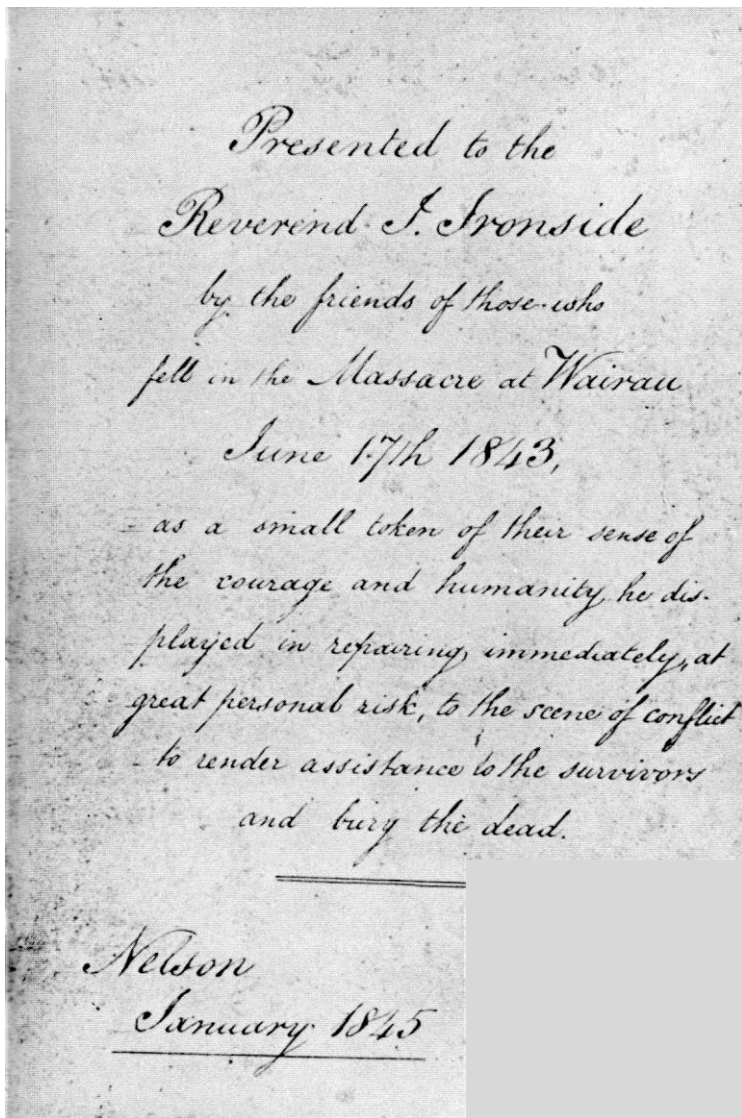 Presented to the
Reverend I. Ironside
by the friends of those who
fell in the Massacre at Wairau
June 17th 1843,
as a small token of their sense of
the courage and humanity he dis-
played in repairing immediately, at
great personal risk, to the scene of conflict
to render assistance to the survivors
and bury the dead.
Nelson
January 1845